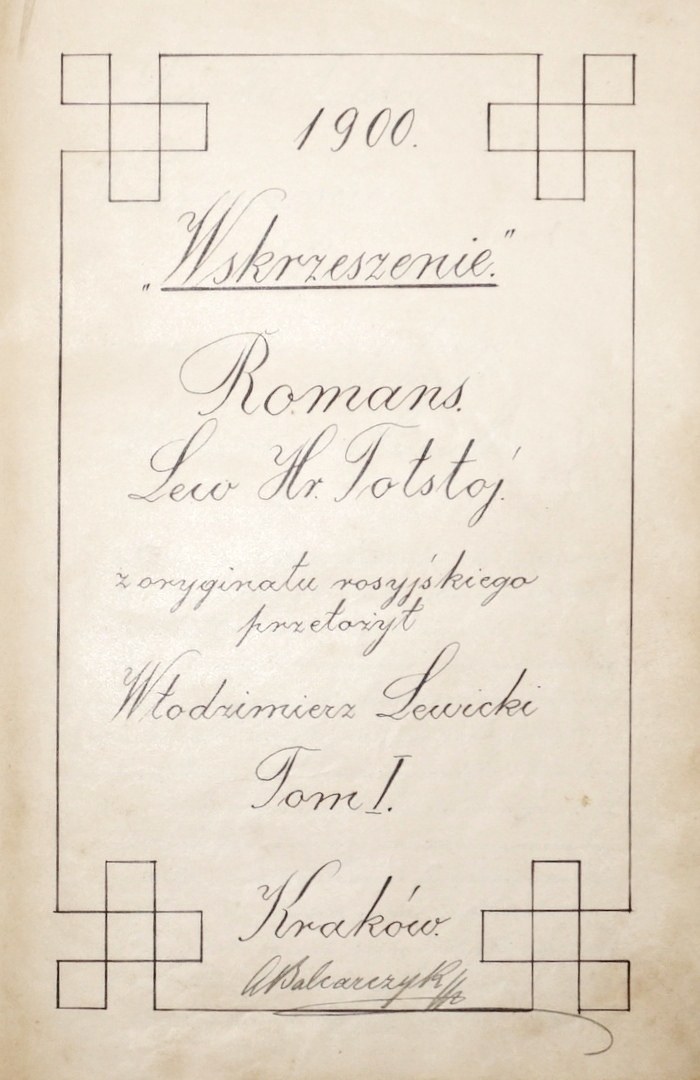 1900.
„Wskrzeszenie."
Romans.
Lew Hr. Tołstoj.
z oryginału rosyjskiego
przełożył
Włodzimierz Lewicki
Tom I.
Kraków.
ABalcarczyk